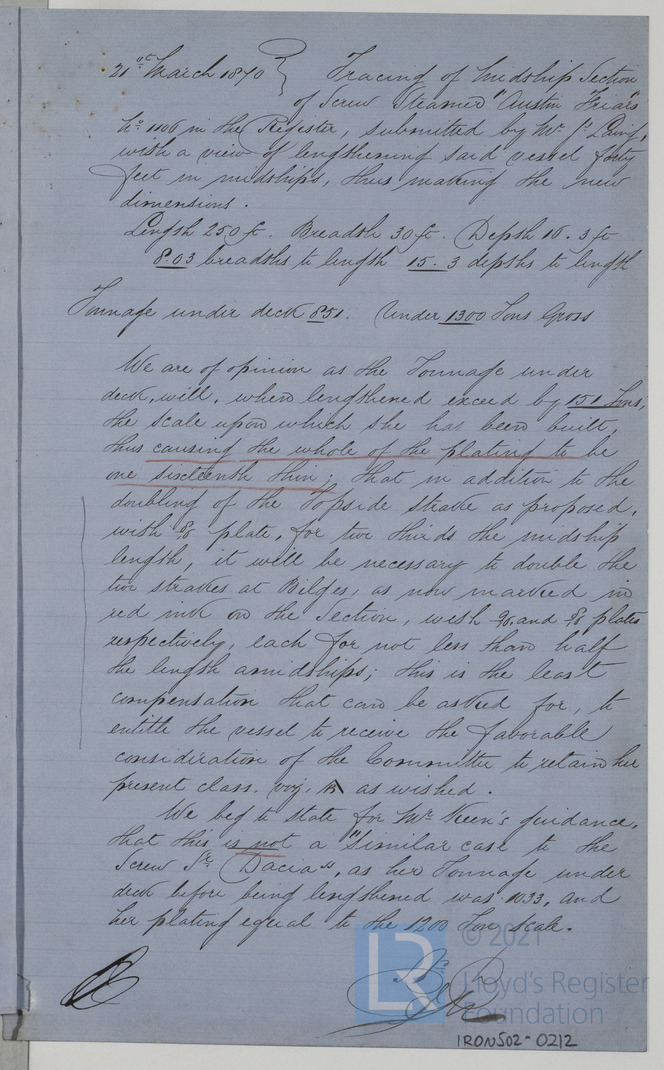 21st March 1870 } Tracing of Midship Section
of Screw Steamer "Austin Friars"
No 1106 in the Register, submitted by Mr Js Laing,
with a view of lengthening said vessel forty
feet in midships, thus making the new
dimensions.
Length 250 ft. Breadth 30 ft. Depth 16.3 ft
8.03 breadths to length 15.3 depths to length
Tonnage under deck 851. Under 1300 Tons Gross
We are of opinion as the Tonnage under
deck, will, when lengthened exceed by 151 Tons,
the scale upon which she has been built,
thus causing the whole of the plating to be
one sixteenth thin; that in addition to the
doubling of the Topside strake as proposed,
with plate, for two thirds the midship
length, it will be necessary to double the
two strakes at Bilges, as now marked in
red ink on the Section, with and plates
respectively, each for not less than half
the length amidships; this is the least
compensation that can be asked for, to
entitle the vessel to receive the favorable
consideration of the Committee to retain her
present class. viz. as wished.
We beg to state for Mr guidance,
that this is not a "similar case to the
Screw Sr "Dacia", as her Tonnage under
deck before being lengthened was 1033, and
her plating equal to the 1200 Ton scale.
© 2021
LR
Lloyd's Register
Foundation
IRON502-0212